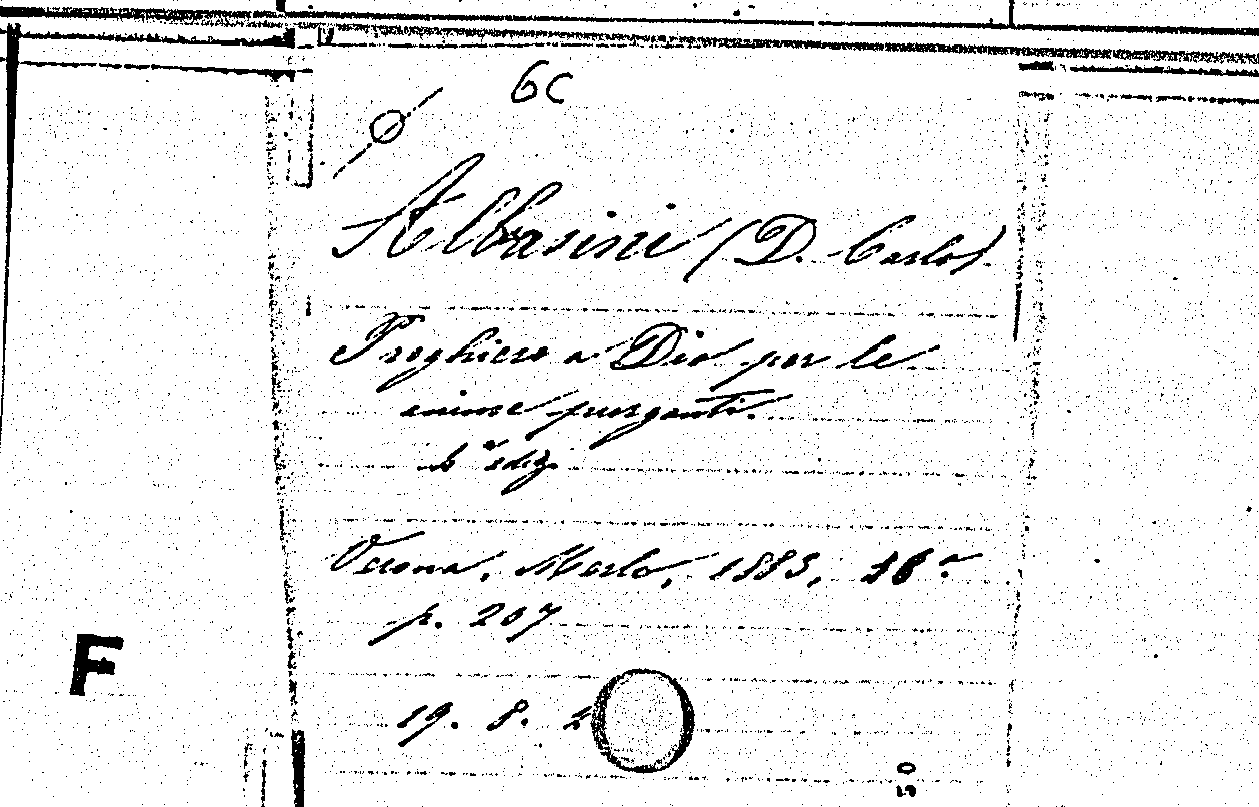 6C
Albasini (D. Carlo)
Preghiere a Dio per le
anime purganti.
6ª ediz.
Verona, Merlo, 1885, 16º
p. 207
F
19. 8.